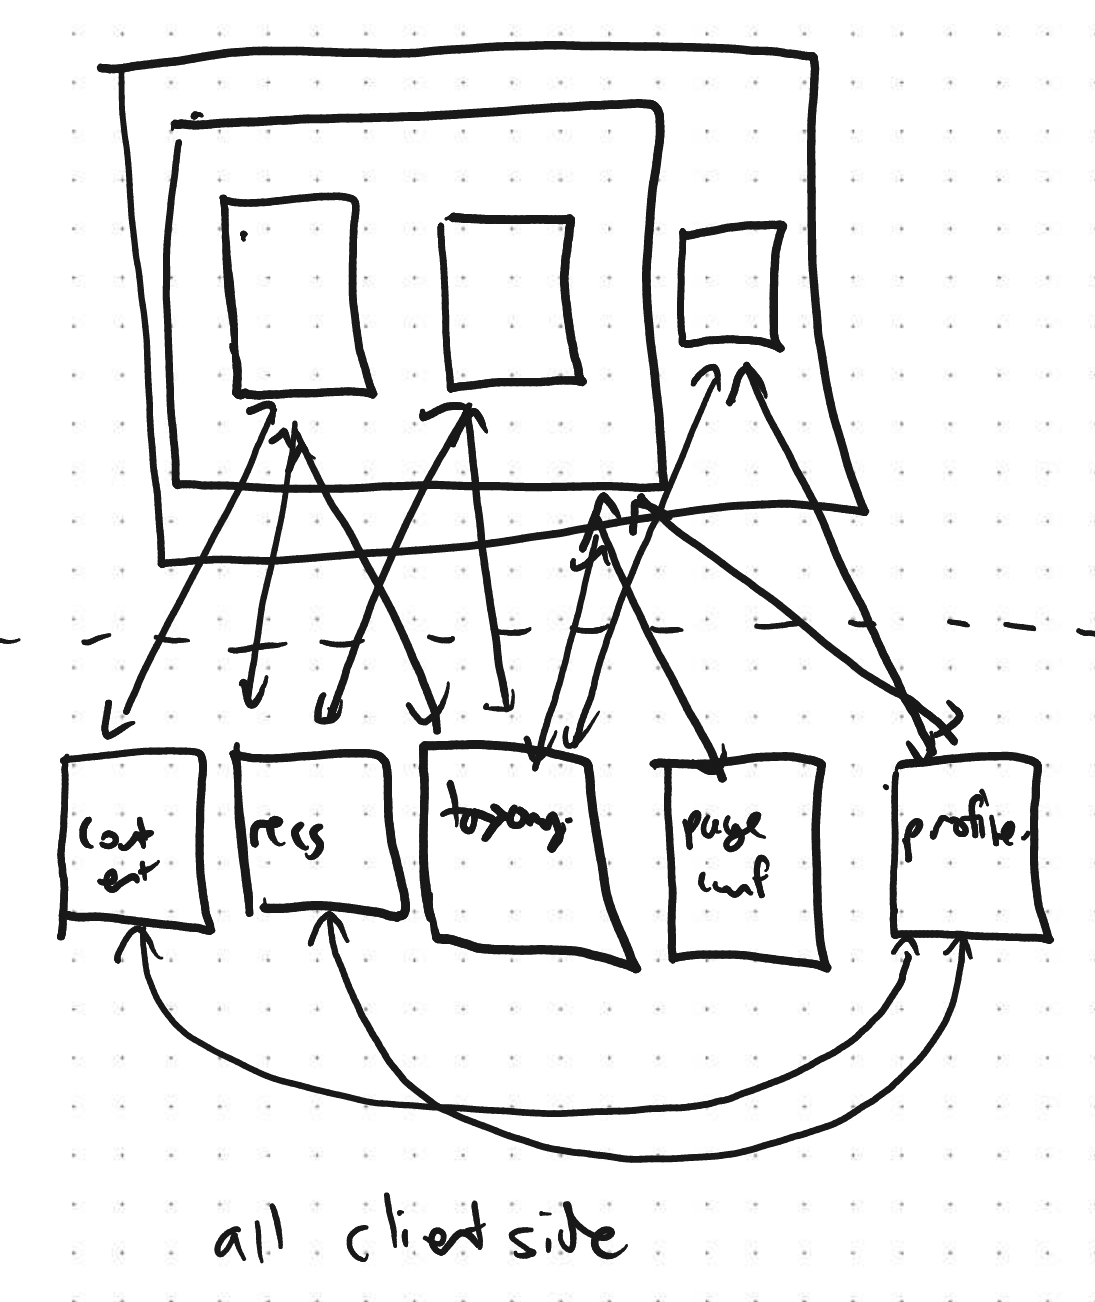 cont
ent
recs
taxonomy
page
conf
profile
all client side